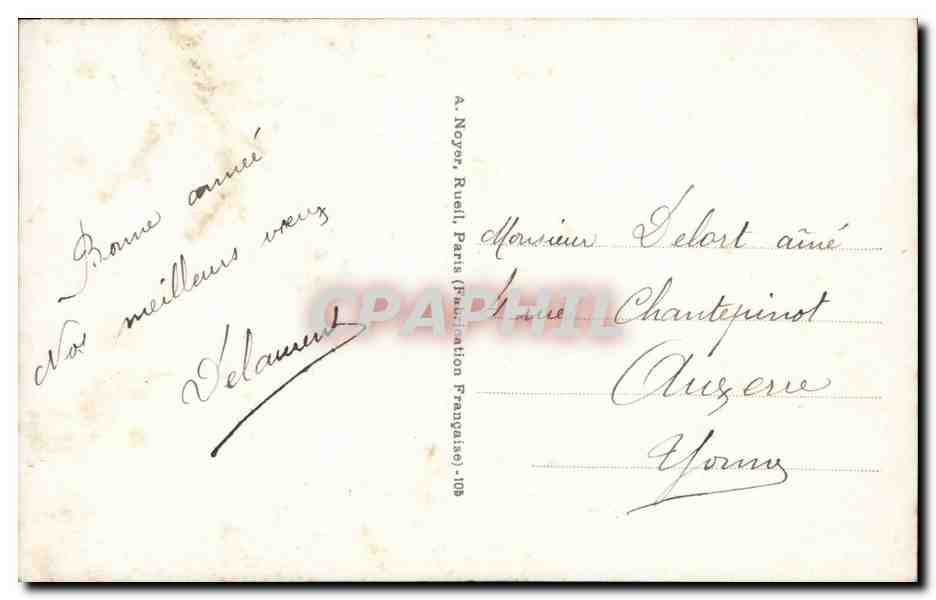 Bonne année
Nos meilleurs vœux
Delament
A. Noyer, Rueil, Paris (Fabrication Française) - 105
Monsieur Delort aîné
rue Chantepinot
Auxerre
Yonne
CPAPHIL